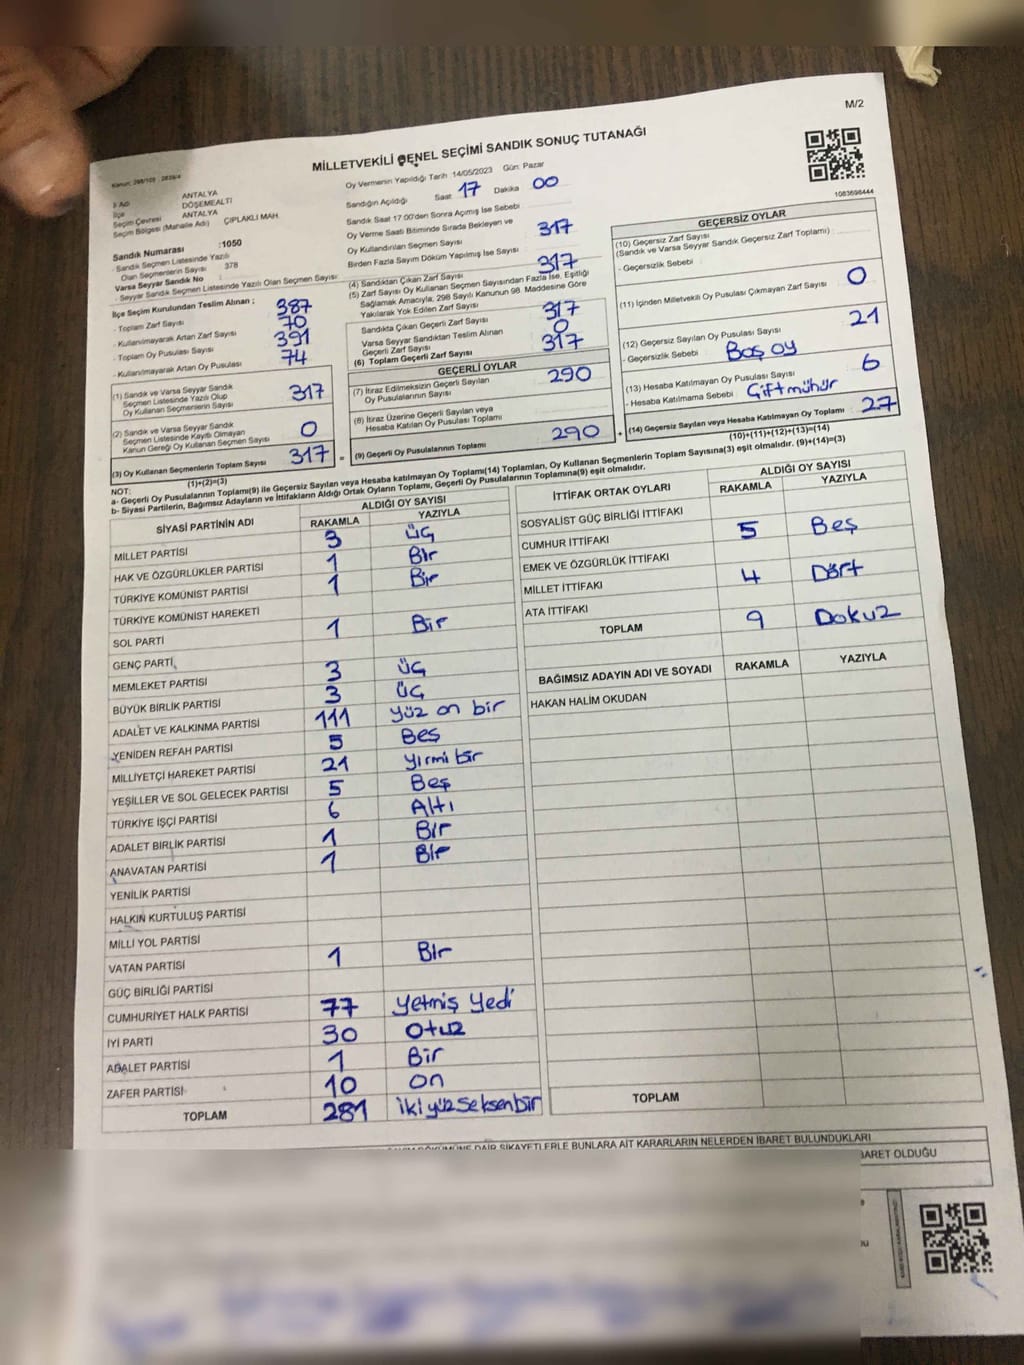 M/2
MİLLETVEKİLİ GENEL SEÇİMİ SANDIK SONUÇ TUTANAĞI
Oy Vermenin Yapıldığı Tarih :14/05/2023 Gün: Pazar
Sandığın Açıldığı Saat 17 Dakika 00
Sandık Saat 17:00'den Sonra Açılmış İse Sebebi
Oy Verme Saati Bitiminde Sırada Bekleyen ve
Oy Kullandırılan Seçmen Sayısı 317
Birden Fazla Sayım Döküm Yapılmış İse Sayısı
1083698444
İl Adı ANTALYA
İlçe DÖŞEMEALTI
Seçim Çevresi ANTALYA
Seçim Bölgesi (Mahalle Adı) ÇIPLAKLI MAH.
Sandık Numarası :1050
Sandık Seçmen Listesinde Yazılı
Olan Seçmenlerin Sayısı 378
Varsa Seyyar Sandık No
- Seyyar Sandık Seçmen Listesinde Yazılı Olan Seçmen Sayısı
İlçe Seçim Kurulundan Teslim Alınan ;
- Toplam Zarf Sayısı 387
- Kullanılmayarak Artan Zarf Sayısı 70
- Toplam Oy Pusulası Sayısı 391
- Kullanılmayarak Artan Oy Pusulası 74
(1) Sandık ve Varsa Seyyar Sandık
Seçmen Listesinde Yazılı Olup
Oy Kullanan Seçmenlerin Sayısı 317
(2) Sandık ve Varsa Seyyar Sandık
Seçmen Listesinde Kayıtlı Olmayan
Kanun Gereği Oy Kullanan Seçmen Sayısı 0
(3) Oy Kullanan Seçmenlerin Toplam Sayısı 317
(1)+(2)=(3)
(4) Sandıktan Çıkan Zarf Sayısı 317
(5) Zarf Sayısı Oy Kullanan Seçmen Sayısından Fazla İse, Eşitliği
Sağlamak Amacıyla; 298 Sayılı Kanunun 98. Maddesine Göre
Yakılarak Yok Edilen Zarf Sayısı
Sandıkta Çıkan Geçerli Zarf Sayısı 317
Varsa Seyyar Sandıktan Teslim Alınan
Geçerli Zarf Sayısı 0
(6) Toplam Geçerli Zarf Sayısı 317
GEÇERLİ OYLAR
(7) İtiraz Edilmeksizin Geçerli Sayılan
Oy Pusulalarının Sayısı 290
(8) İtiraz Üzerine Geçerli Sayılan veya
Hesaba Katılan Oy Pusulası Toplamı
= (9) Geçerli Oy Pusulalarının Toplamı 290 +
GEÇERSİZ OYLAR
(10) Geçersiz Zarf Sayısı
(Sandık ve Varsa Seyyar Sandık Geçersiz Zarf Toplamı)
- Geçersizlik Sebebi
(11) İçinden Milletvekili Oy Pusulası Çıkmayan Zarf Sayısı 0
(12) Geçersiz Sayılan Oy Pusulası Sayısı 21
- Geçersizlik Sebebi Boş oy
(13) Hesaba Katılmayan Oy Pusulası Sayısı 6
- Hesaba Katılmama Sebebi Çift mühür
(14) Geçersiz Sayılan veya Hesaba Katılmayan Oy Toplamı 27
(10)+(11)+(12)+(13)=(14)
NOT:
a- Geçerli Oy Pusulalarının Toplamı(9) ile Geçersiz Sayılan veya Hesaba katılmayan Oy Toplamı(14) Toplamları, Oy Kullanan Seçmenlerin Toplam Sayısına(3) eşit olmalıdır. (9)+(14)=(3)
b- Siyasi Partilerin, Bağımsız Adayların ve İttifakların Aldığı Ortak Oyların Toplamı, Geçerli Oy Pusulalarının Toplamına(9) eşit olmalıdır.
SİYASİ PARTİNİN ADI ALDIĞI OY SAYISI
RAKAMLA YAZIYLA
MİLLET PARTİSİ 3 üç
HAK VE ÖZGÜRLÜKLER PARTİSİ 1 Bir
TÜRKİYE KOMÜNİST PARTİSİ 1 Bir
TÜRKİYE KOMÜNİST HAREKETİ
SOL PARTİ 1 Bir
GENÇ PARTİ
MEMLEKET PARTİSİ 3 üç
BÜYÜK BİRLİK PARTİSİ 3 üç
ADALET VE KALKINMA PARTİSİ 111 yüz on bir
YENİDEN REFAH PARTİSİ 5 Beş
MİLLİYETÇİ HAREKET PARTİSİ 21 yirmi bir
YEŞİLLER VE SOL GELECEK PARTİSİ 5 Beş
TÜRKİYE İŞÇİ PARTİSİ 6 Altı
ADALET BİRLİK PARTİSİ 1 Bir
ANAVATAN PARTİSİ 1 Bir
YENİLİK PARTİSİ
HALKIN KURTULUŞ PARTİSİ
MİLLİ YOL PARTİSİ
VATAN PARTİSİ 1 Bir
GÜÇ BİRLİĞİ PARTİSİ
CUMHURİYET HALK PARTİSİ 77 yetmiş yedi
İYİ PARTİ 30 otuz
ADALET PARTİSİ 1 Bir
ZAFER PARTİSİ 10 on
TOPLAM 281 iki yüz seksen bir
İTTİFAK ORTAK OYLARI ALDIĞI OY SAYISI
RAKAMLA YAZIYLA
SOSYALİST GÜÇ BİRLİĞİ İTTİFAKI
CUMHUR İTTİFAKI 5 Beş
EMEK VE ÖZGÜRLÜK İTTİFAKI
MİLLET İTTİFAKI 4 Dört
ATA İTTİFAKI
TOPLAM 9 Dokuz
BAĞIMSIZ ADAYIN ADI VE SOYADI RAKAMLA YAZIYLA
HAKAN HALİM OKUDAN
TOPLAM
DÖKÜMÜNE DAİR ŞİKAYETLERLE BUNLARA AİT KARARLARIN NELERDEN İBARET BULUNDUKLARI
İBARET OLDUĞU